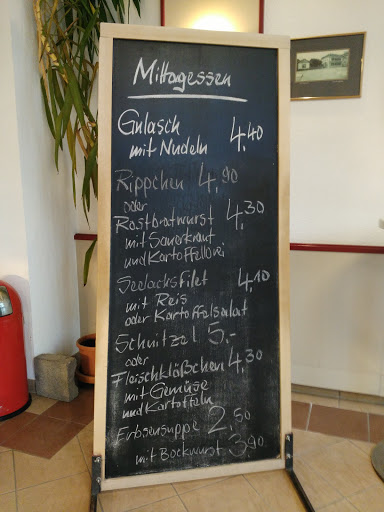 Mittagessen
Gulasch
mit Nudeln 4,40
Rippchen 4,90
oder
Rostbratwurst 4,30
mit Sauerkraut
und Kartoffelbrei
Seelachsfilet 4,10
mit Reis
oder Kartoffelsalat
Schnitzel 5,-
oder
Fleischklößchen 4,30
mit Gemüse
und Kartoffeln
Erbsensuppe 2,50
mit Bockwurst 3,90